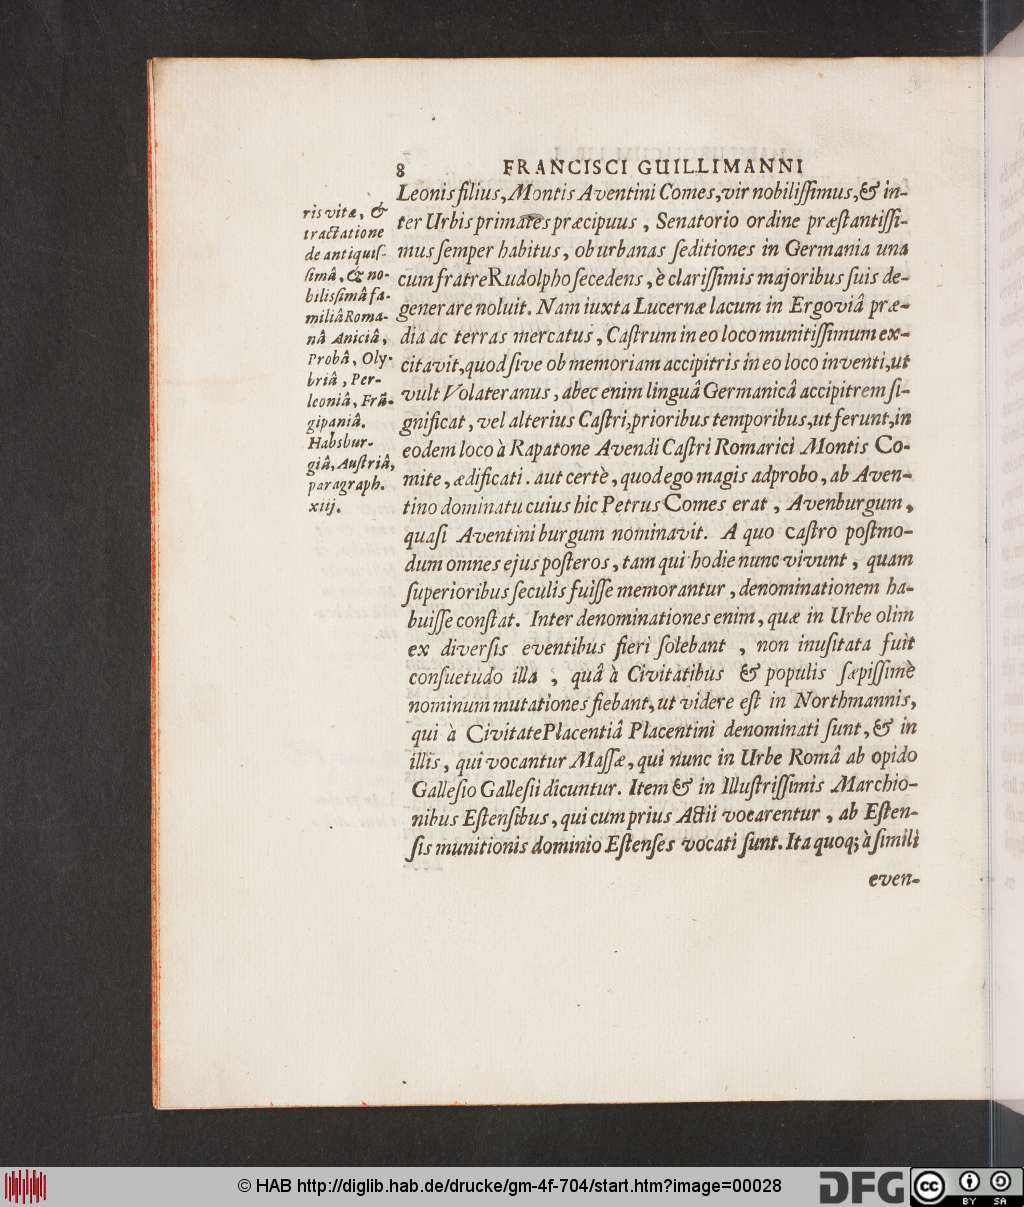 8 FRANCISCI GUILLIMANNI
ris vitæ, &
tractatione
de antiquiſ-
ſimâ, & no-
bilisſimâ fa-
miliâ Roma-
nâ Aniciâ,
Probâ, Oly-
briâ, Per-
leoniâ, Frã-
gipaniâ.
Habsbur-
giâ, Auſtriâ,
paragraph.
xiij.
Leonis filius, Montis Aventini Comes, vir nobiliſſimus, & in-
ter Urbis primates præcipuus, Senatorio ordine præſtantiſſi-
mus ſemper habitus, ob urbanas ſeditiones in Germania una
cum fratre Rudolpho ſecedens, è clariſſimis majoribus ſuis de-
generare noluit. Nam iuxta Lucernæ lacum in Ergoviâ præ-
dia ac terras mercatus, Caſtrum in eo loco munitiſſimum ex-
citavit, quod ſive ob memoriam accipitris in eo loco inventi, ut
vult Volateranus, abec enim linguâ Germanicâ accipitrem ſi-
gnificat, vel alterius Caſtri, prioribus temporibus, ut ferunt, in
eodem loco à Rapatone Avendi Caſtri Romarici Montis Co-
mite, ædificati. aut certè, quod ego magis adprobo, ab Aven-
tino dominatu cuius hic Petrus Comes erat, Avenburgum,
quaſi Aventini burgum nominavit. A quo caſtro poſtmo-
dum omnes ejus poſteros, tam qui hodie nunc vivunt, quam
ſuperioribus ſeculis fuiſſe memorantur, denominationem ha-
buiſſe conſtat. Inter denominationes enim, quæ in Urbe olim
ex diverſis eventibus fieri ſolebant, non inuſitata fuit
conſuetudo illa, quâ à Civitatibus & populis ſæpiſſimè
nominum mutationes fiebant, ut videre eſt in Northmannis,
qui à Civitate Placentiâ Placentini denominati ſunt, & in
illis, qui vocantur Maſſæ, qui nunc in Urbe Româ ab opido
Galleſio Galleſii dicuntur. Item & in Illuſtriſſimis Marchio-
nibus Eſtenſibus, qui cum prius Actii vocarentur, ab Eſten-
ſis munitionis dominio Eſtenſes vocati ſunt. Ita quoq; à ſimili
even-
© HAB http://diglib.hab.de/drucke/gm-4f-704/start.htm?image=00028
DFG
cc BY SA